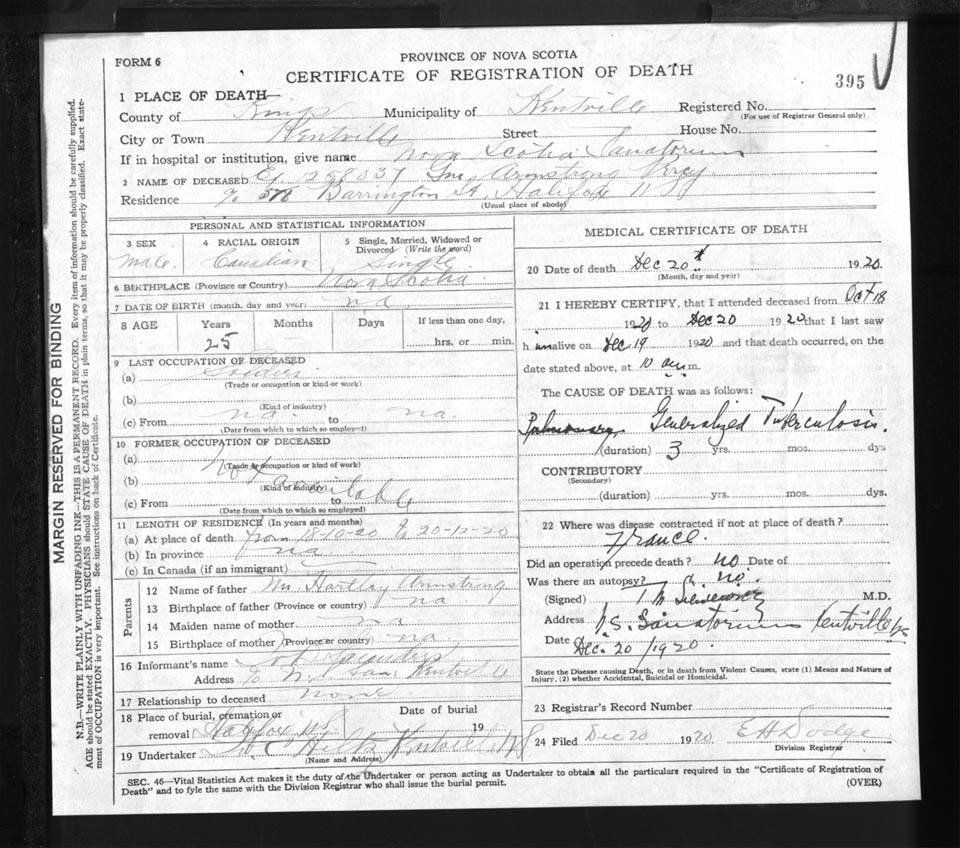 FORM 6
PROVINCE OF NOVA SCOTIA
CERTIFICATE OF REGISTRATION OF DEATH
395
1 PLACE OF DEATH—
County of Kings Municipality of Kentville Registered No.
(For use of Registrar General only)
City or Town Kentville Street House No.
If in hospital or institution, give name Nova Scotia Sanatorium
2 NAME OF DECEASED Armstrong
Residence % 578 Barrington St. Halifax
(Usual place of abode)
PERSONAL AND STATISTICAL INFORMATION
3 SEX
Male
4 RACIAL ORIGIN
Canadian
5 Single, Married, Widowed or Divorced (Write the word)
Single
6 BIRTHPLACE (Province or Country) Nova Scotia
7 DATE OF BIRTH (month, day and year) na
8 AGE Years Months Days If less than one day,
25 hrs. or min.
9 LAST OCCUPATION OF DECEASED
(a)
(Trade or occupation or kind or work)
(b)
(Kind of industry)
(c) From na to na.
(Date from which to which so employed)
10 FORMER OCCUPATION OF DECEASED
(a) Not
(Trade or occupation or kind of work)
(b) available
(Kind of industry)
(c) From to
(Date from which to which so employed)
11 LENGTH OF RESIDENCE (In years and months)
(a) At place of death from 18-10-20 to 20-12-20
(b) In province na
(c) In Canada (if an immigrant)
Parents
12 Name of father Mr Hartley Armstrong
13 Birthplace of father (Province or country) na
14 Maiden name of mother na
15 Birthplace of mother (Province or country) na
16 Informant's name
Address % N.S. San. Kentville
17 Relationship to deceased none
18 Place of burial, cremation or Date of burial
removal Halifax NS 19
19 Undertaker Kentville NS
(Name and Address)
MEDICAL CERTIFICATE OF DEATH
20 Date of death Dec 20 1920
(Month, day and year)
21 I HEREBY CERTIFY, that I attended deceased from Oct 18
1920 to Dec 20 1920 that I last saw
h im alive on Dec 19 1920 and that death occurred, on the
date stated above, at 10 a.m.
The CAUSE OF DEATH was as follows:
Pulmonary Generalized Tuberculosis.
(duration) 3 yrs. mos. dys
CONTRIBUTORY
(Secondary)
(duration) yrs. mos. dys.
22 Where was disease contracted if not at place of death?
France.
Did an operation precede death? No Date of
Was there an autopsy? No.
(Signed) M.D.
Address N.S. Sanatorium Kentville NS
Date Dec. 20/1920.
State the Disease causing Death, or in death from Violent Causes, state (1) Means and Nature of
Injury, (2) whether Accidental, Suicidal or Homicidal.
23 Registrar's Record Number
24 Filed Dec 20 1920 E H Dodge
Division Registrar
SEC. 46—Vital Statistics Act makes it the duty of the Undertaker or person acting as Undertaker to obtain all the particulars required in the "Certificate of Registration of
Death" and to fyle the same with the Division Registrar who shall issue the burial permit.
(OVER)
MARGIN RESERVED FOR BINDING
N.B.—WRITE PLAINLY WITH UNFADING INK—THIS IS A PERMANENT RECORD. Every item of information should be carefully supplied.
AGE should be stated EXACTLY. PHYSICIANS should STATE CAUSE OF DEATH in plain terms, so that it may be properly classified. Exact state-
ment of OCCUPATION is very important. See instructions on back of Certificate.